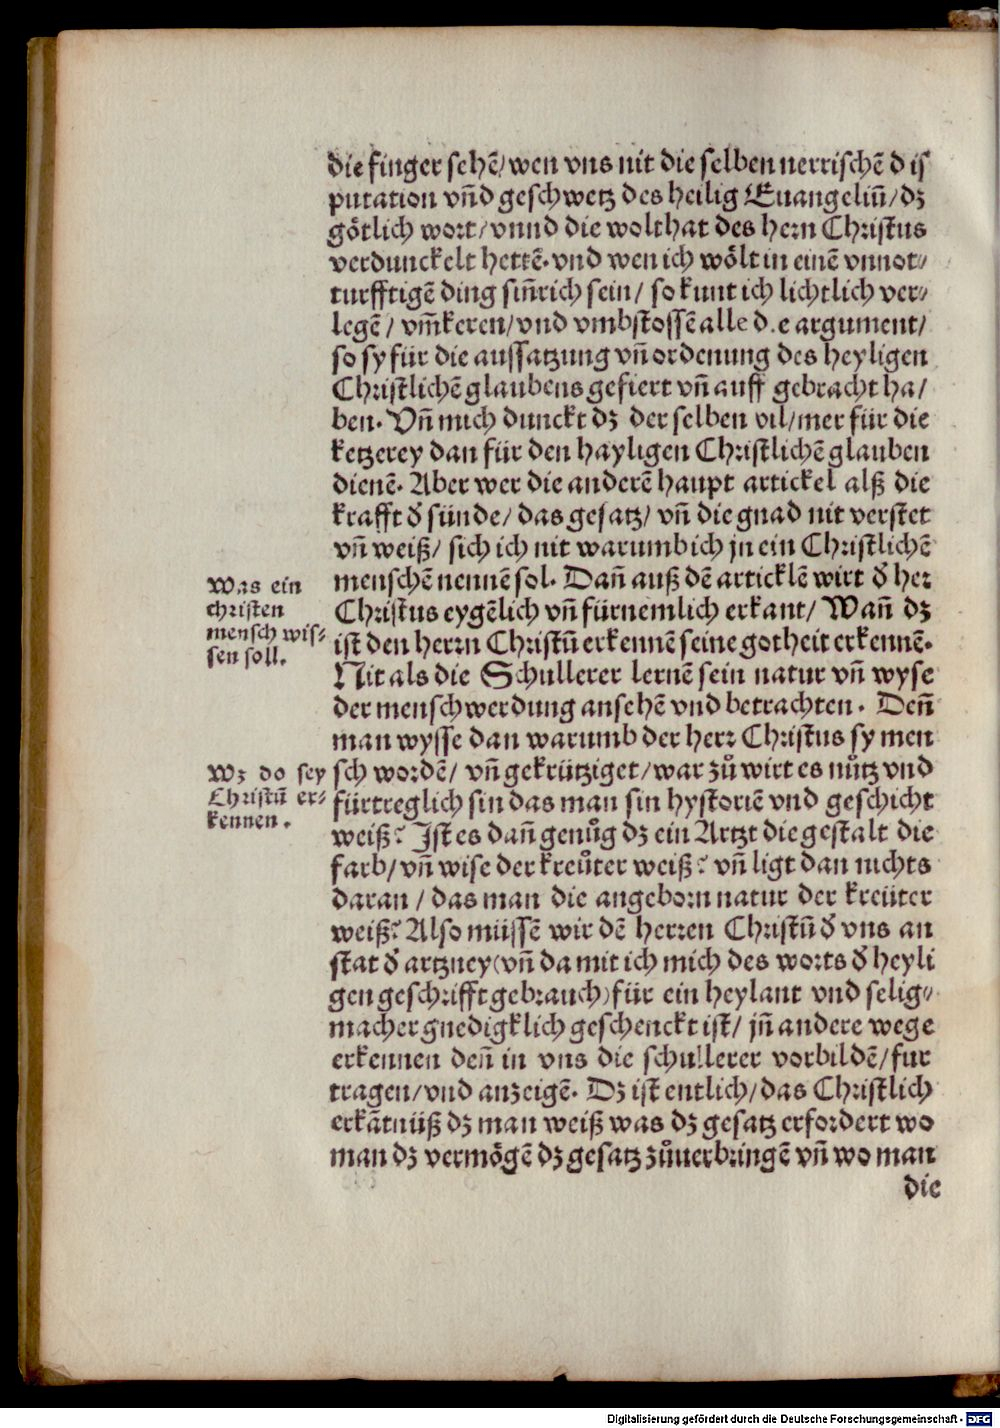 die finger sehē/ wen vns nit die selben nerrischē d is
putation vñd geschwetz des heilig Euangeliū/ dz
götlich wort/ vnnd die wolthat des hern Christus
verdunckelt hettē. vnd wen ich wölt in einē vnnot⸗
turfftigē ding siñrich sein/ so kunt ich lichtlich ver⸗
legē/ vm̄keren/ vnd vmbstossē alle d.e argument/
so sy für die aussatzung vñ ordenung des heyligen
Christlichē glaubens gefiert vñ auff gebracht ha/
ben. Vñ mich dunckt dz der selben vil/ mer für die
ketzerey dan für den hayligen Christlichē glauben
dienē. Aber wer die anderē haupt artickel alß die
krafft d̄ sünde/ das gesatz/ vñ die gnad nit verstet
vñ weiß/ sich ich nit warumb ich jn ein Christlichē
Was ein
christen
mensch wis⸗
sen soll.
menschē nennē sol. Dañ auß dē articklē wirt d̄ her
Christus eygēlich vñ fürnemlich erkant/ Wañ dz
ist den herrn Christū erkennē seine gotheit erkennē.
Nit als die Schullerer lernē sein natur vñ wyse
der menschwerdung ansehē vnd betrachten. Deñ
man wysse dan warumb der herr Christus sy men
Wz do sey
Christū er⸗
kennen.
sch wordē/ vñ gekrütziget/ war zů wirt es nůtz vnd
fürtreglich sin das man sin hystoriē vnd geschicht
weiß? Ist es dañ genůg dz ein Artzt die gestalt die
farb/ vñ wise der kreůter weiß? vñ ligt dan nichts
daran/ das man die angeborn natur der kreüter
weiß? Also müssē wir dē herren Christū d̄ vns an
stat d̄ artzney (vñ da mit ich mich des worts d̄ heyli
gen geschrifft gebrauch) für ein heylant vnd selig⸗
macher gnedigklich geschenckt ist/ jñ andere wege
erkennen deñ in vns die schullerer vorbildē/ fur
tragen/ vnd anzeigē. Dz ist entlich/ das Christlich
erkātnüß dz man weiß was dz gesatz erfordert wo
man dz vermögē dz gesatz zůuerbringē vñ wo man
die
Digitalisierung gefördert durch die Deutsche Forschungsgemeinschaft - DFG